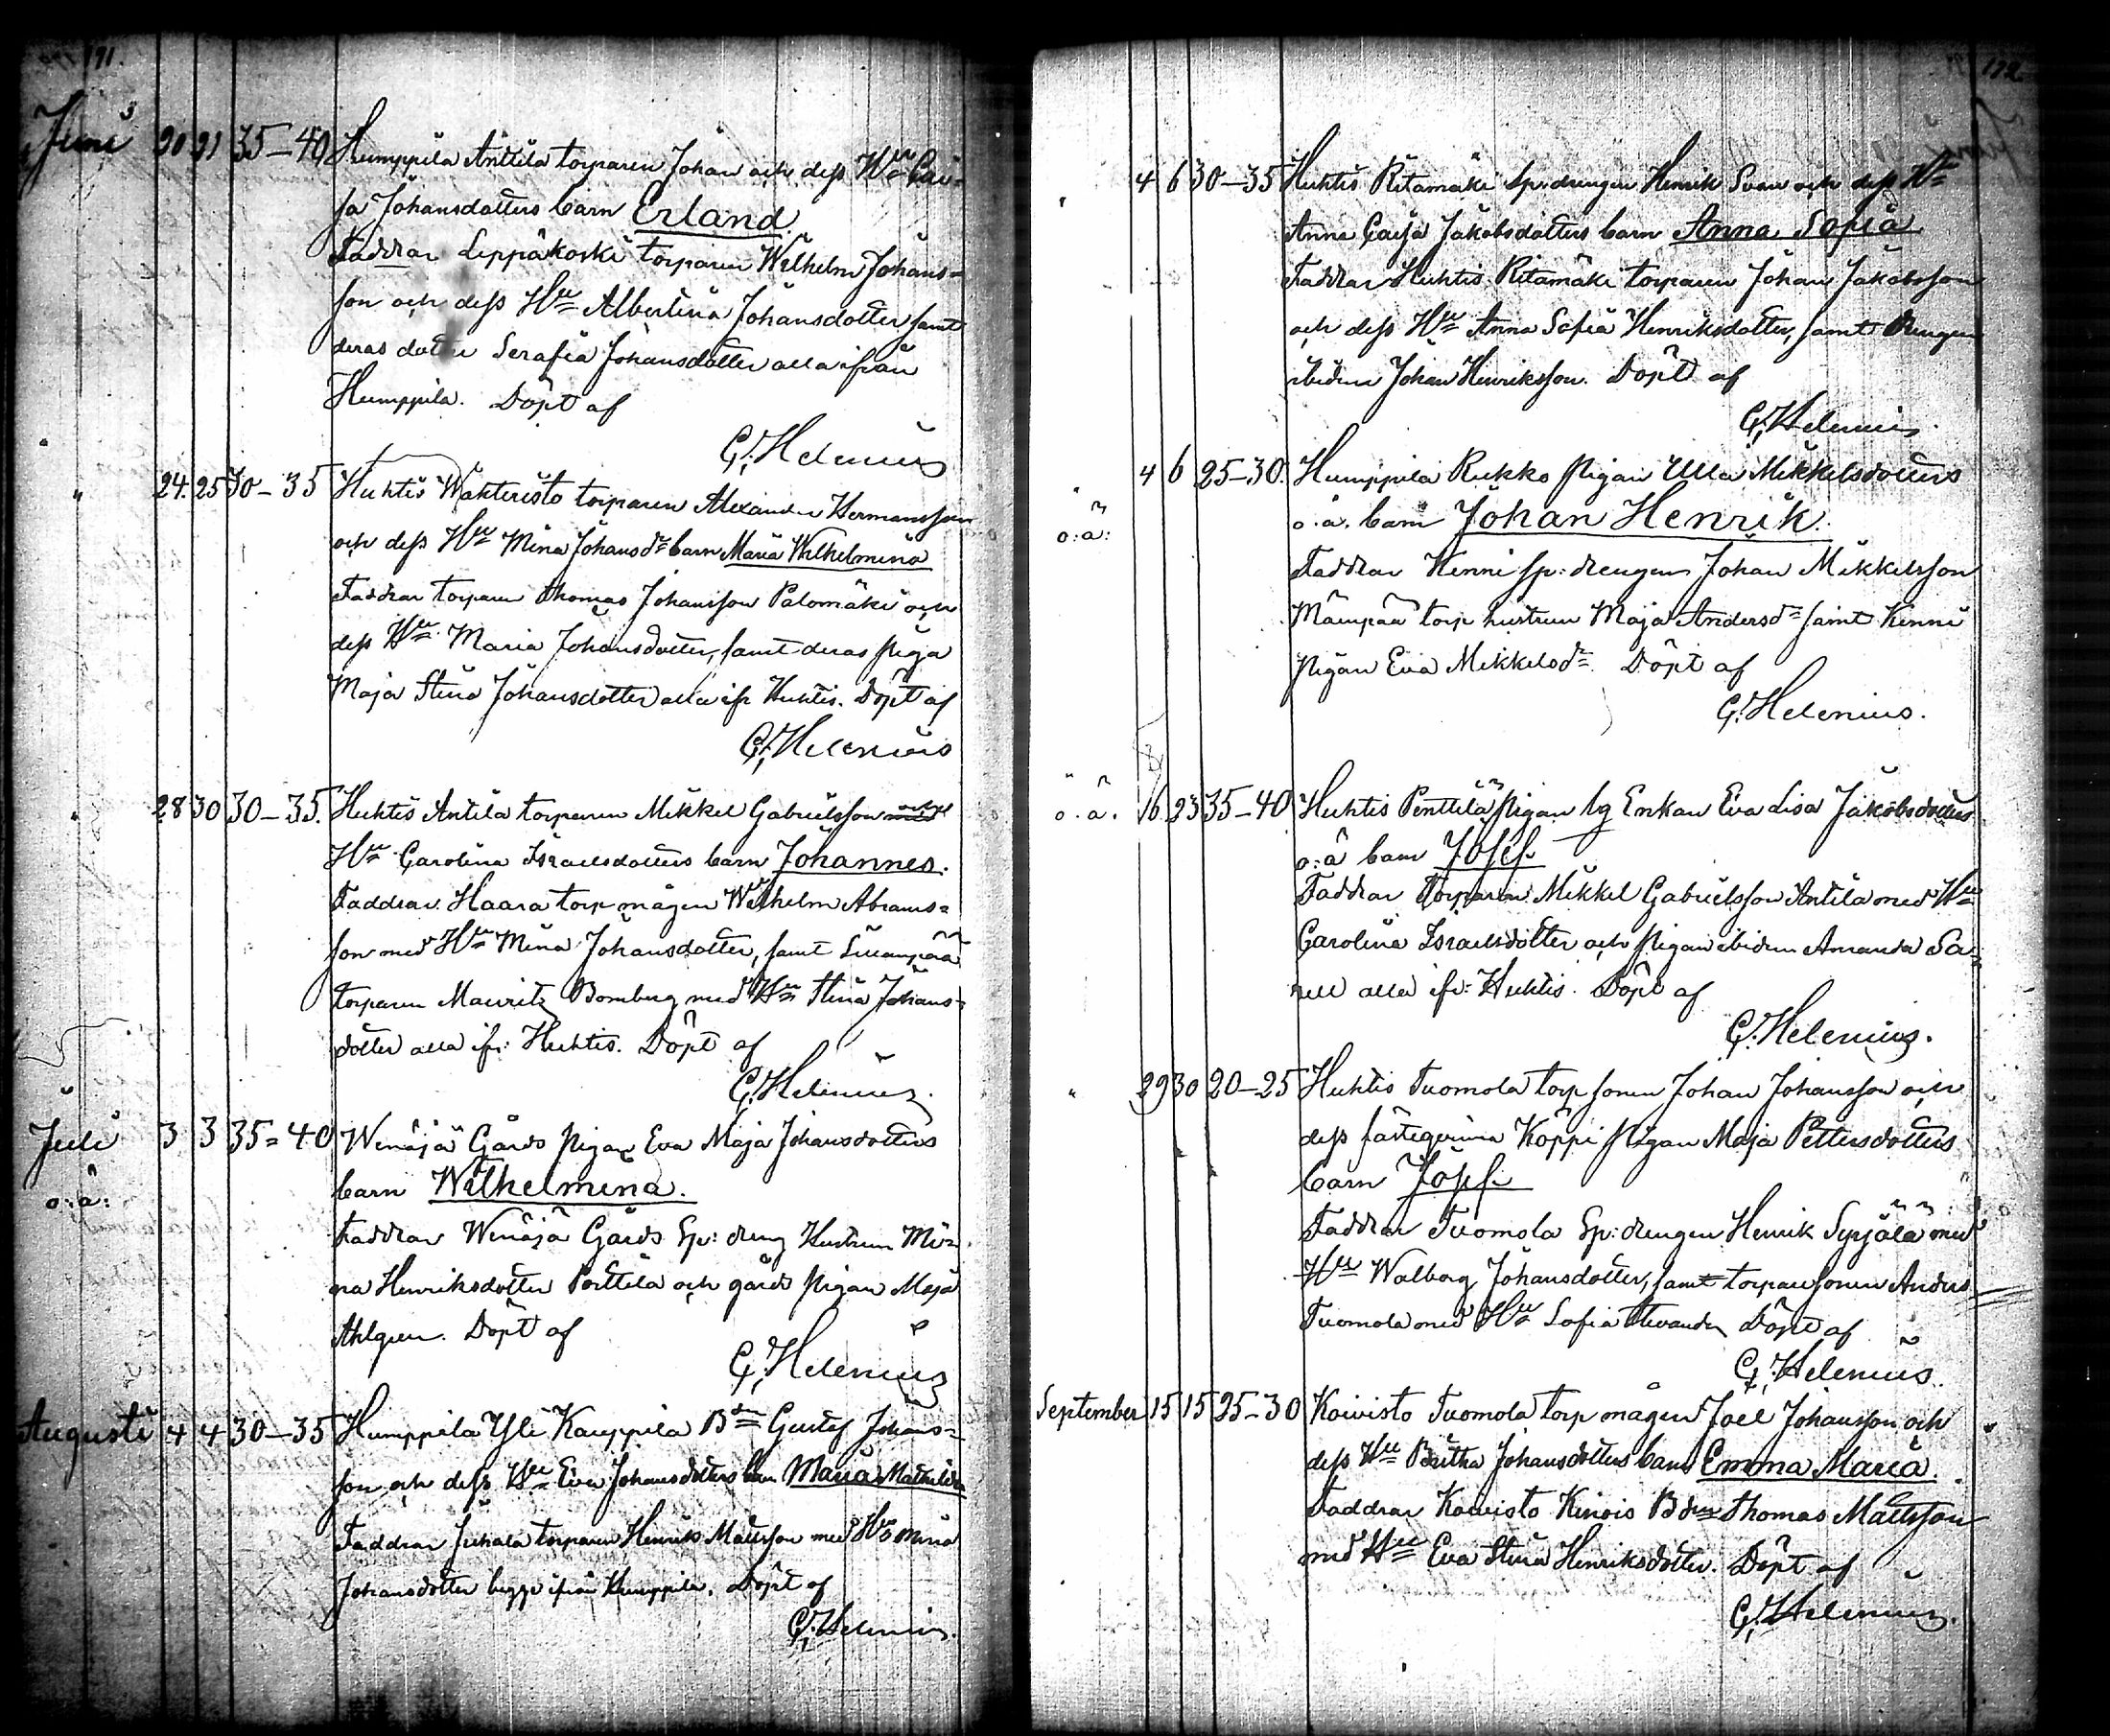 191.
Juni 20 21 35-40 Humppila Anttila torparen Johan och dess Hu Cai-
sa Johansdotters barn Erland.
Faddrar Leppäkoski torparen Wilhelm Johans-
son och dess Hu Albertina Johansdotter samt
deras dotter Serafia Johansdotter alla ifrån
Humppila. Döpt af
G. Helenius
" 24. 25 30-35 Huhtis Wahteristo torparen Alexander Hermansson
och dess Hu Mina Johansdr barn Maria Wilhelmina
Faddrar torparen Thomas Johansson Palomäki och
dess Hu Maria Johansdotter, samt deras piga
Maja Stina Johansdotter alla ifr Huhtis. Döpt af
G. Helenius
" 28 30 30-35. Huhtis Antila torparen Mikkel Gabrielsson
Hu Carolina Israelsdotters barn Johannes.
Faddrar Haara torp mågen Wilhelm Abrams-
son med Hu Mina Johansdotter, samt
torparen Mauritz Bomberg med Hu Stina Johans-
dotter alla ifr: Huhtis. Döpt af
G. Helenius.
Juli 3 3 35=40 Wenäjä Gårds pigan Eva Maja Johansdotters
o:ä: barn Wilhelmina.
Faddrar Wenäjä Gårds Sp: dreng Hustrun Mi-
na Henriksdotter Porttila och gårds pigan Maja
Ahlgren. Döpt af
G. Helenius
Augusti 4 4 30-35 Humppila Yli Kauppila Bdn Gustaf Johans-
son och dess Hu Eva Johansdotters barn Maria Mathilda
Faddrar Juhala torparen Henrik Mattsson med Hu Mina
Johansdotter begge ifrån Humppila. Döpt af
G. Helenius.
172
" 4 6 30-35 Huhtis Ritamäki Sp: drengen Henrik Svan och dess Hu
Anna Caisa Jakobsdotters barn Anna Sofia
Faddrar Huhtis Ritamäki torparen Johan Jakobsson
och dess Hu Anna Sofia Henriksdotter, samt drengen
ibidem Johan Henriksson. Döpt af
G. Helenius.
" 4 6 25-30. Humppila Rukko pigan Ulla Mikkelsdotters
o:ä: o.ä. barn Johan Henrik.
Faddrar Kenni sp: drengen Johan Mikkelsson
Mäenpää torp hustrun Maja Andersdr samt Kenni
pigan Eva Mikkelsdr. Döpt af
G. Helenius.
" o.ä. 16 23 35-40 Huhtis Penttilä pigan lg Enkan Eva Lisa Jakobsdotters
o:ä barn Josef.
Faddrar Torparen Mikkel Gabrielsson Antila med Hu
Carolina Israelsdotter och pigan ibidem Amanda Sa-
rell alla ifr: Huhtis. Döpt af
G. Helenius.
" 29 30 20-25 Huhtis Tuomola torp sonen Johan Johansson och
dess fästeqvinna Koppi pigan Maja Pettersdotters
barn Josef.
Faddrar Tuomola Sp: drengen Henrik Syrjälä med
Hu Walborg Johansdotter, samt torparesonen Anders
Tuomola med Hu Sofia Stevander Döpt af
G. Helenius.
September 15 15 25-30 Koivisto Tuomola torp mågen Joel Johansson och
dess Hu Britha Johansdotters barn Emma Maria.
Faddrar Koivisto Bdn Thomas Mattsson
med Hu Eva Stina Henriksdotter. Döpt af
G. Helenius.